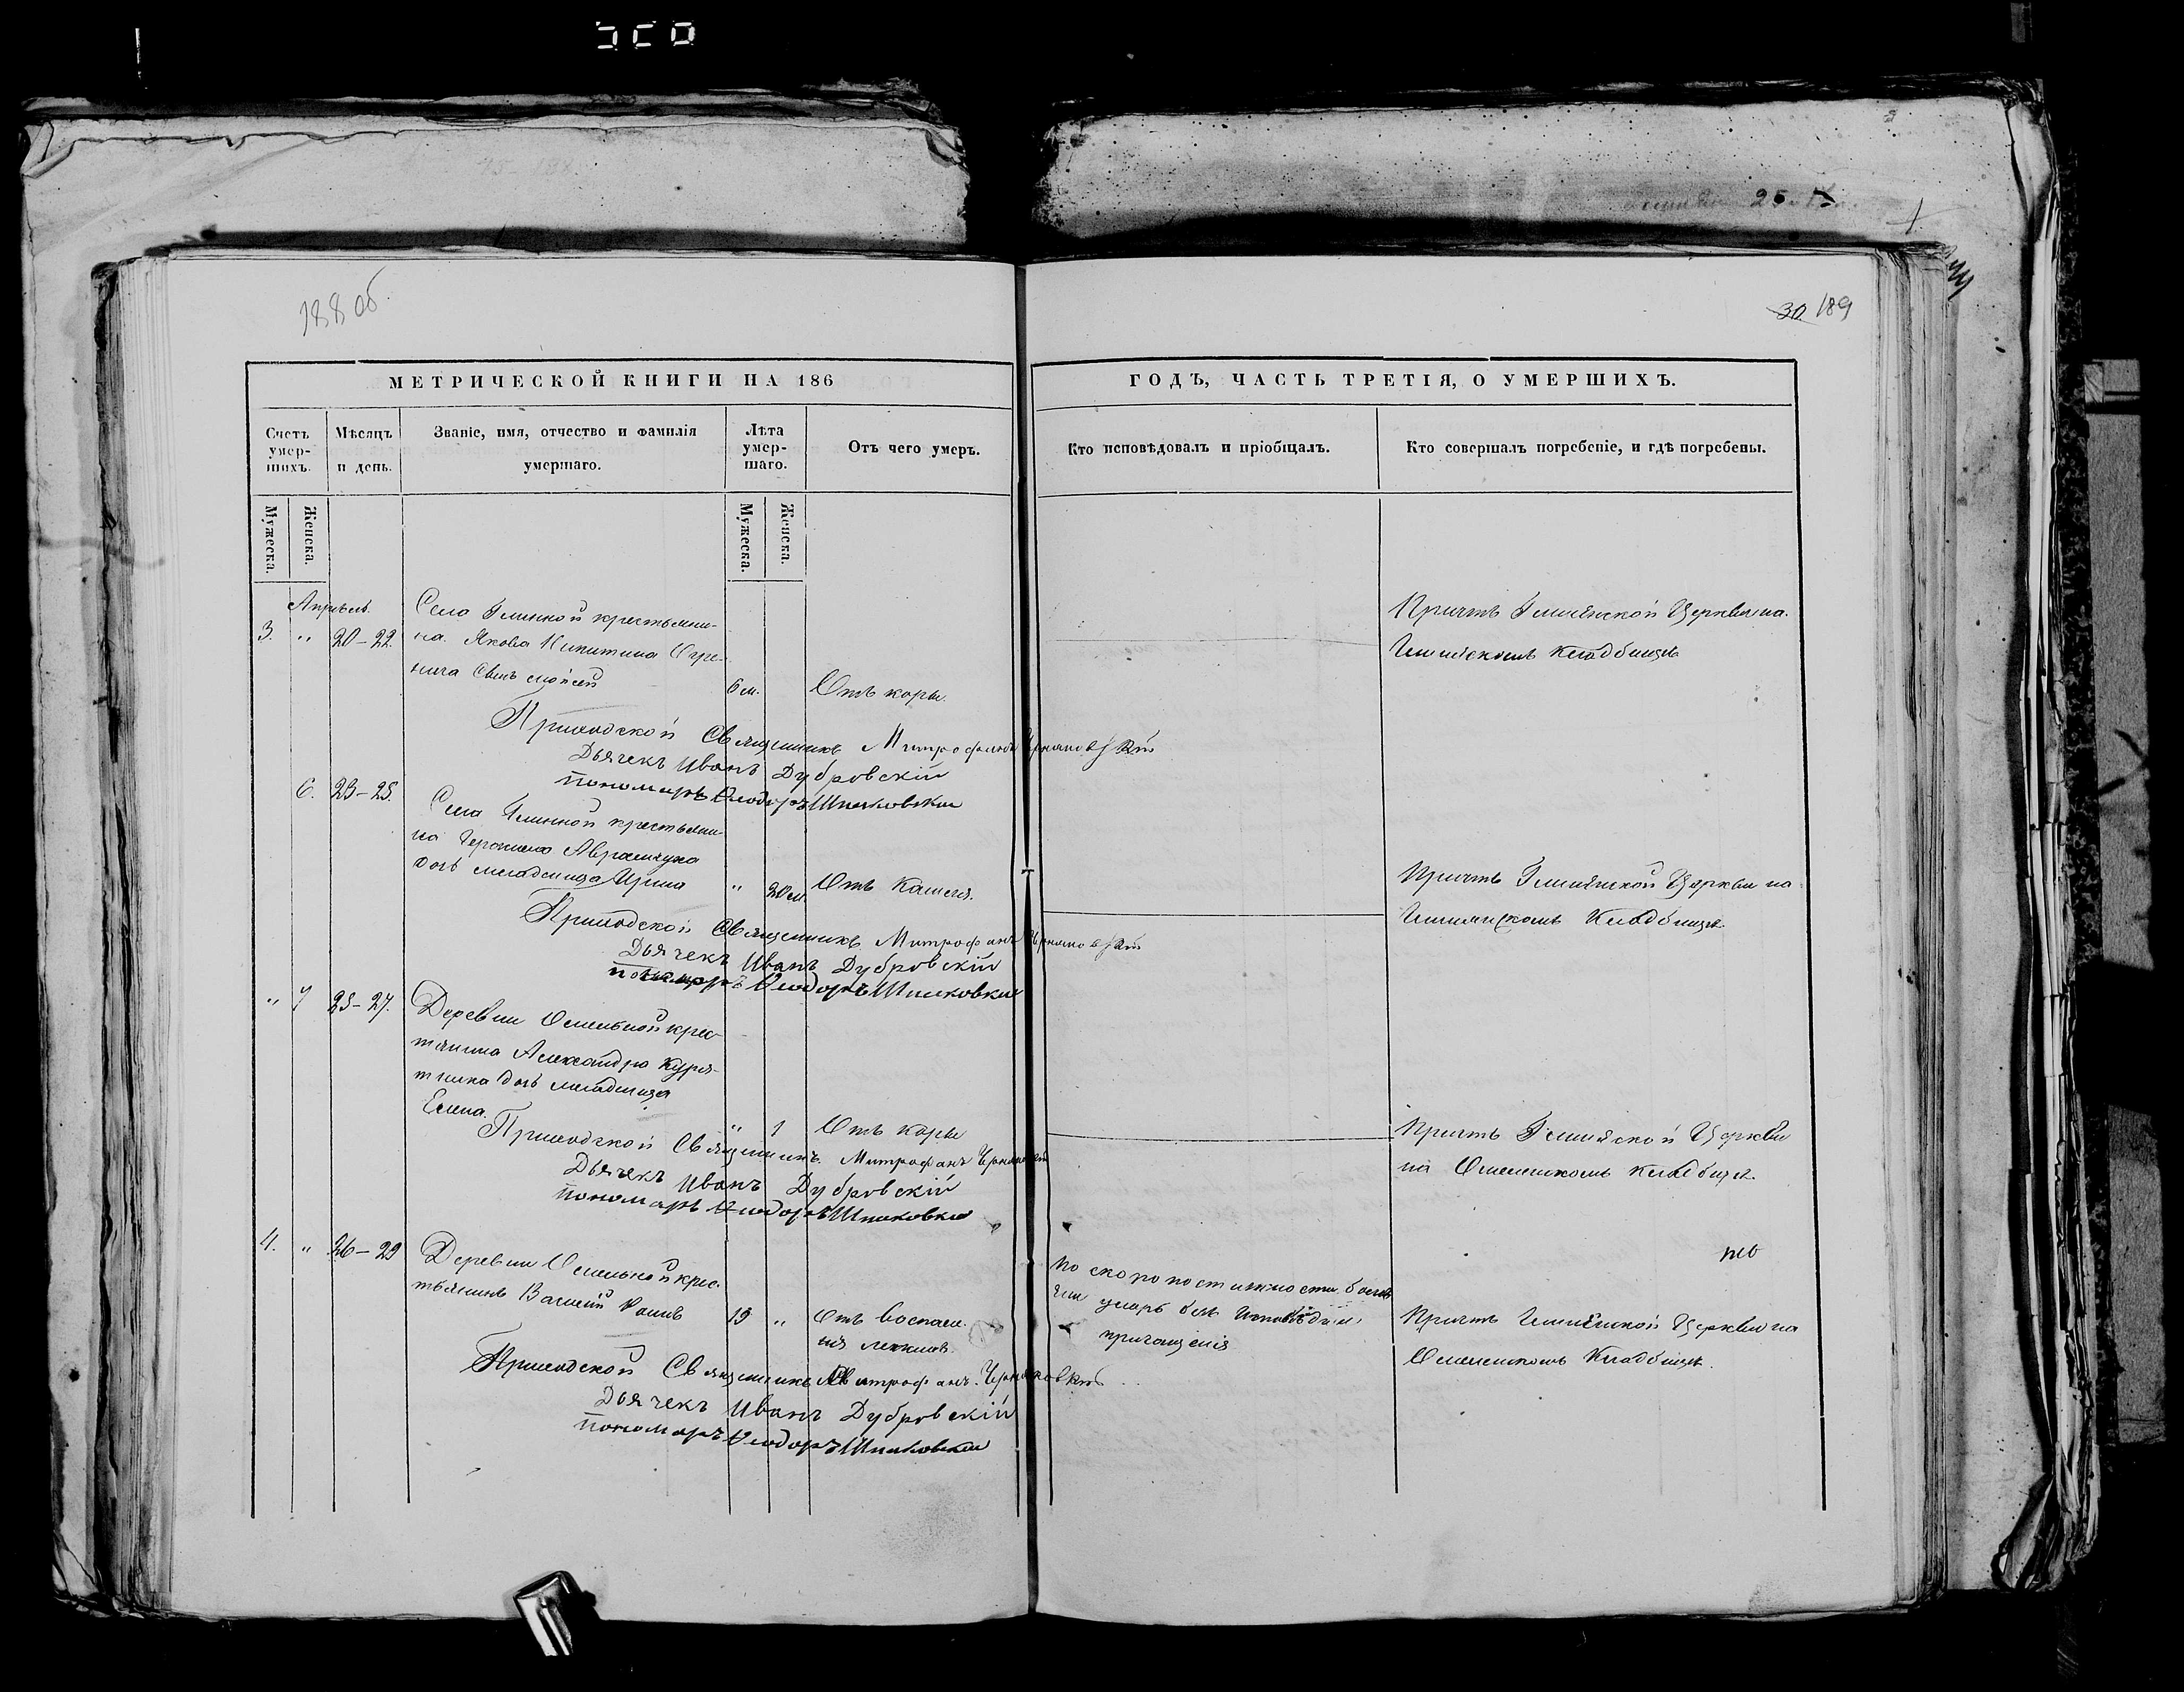 188 об.
30 189
МЕТРИЧЕСКОЙ КНИГИ НА 186
ГОДЪ, ЧАСТЬ ТРЕТІЯ, О УМЕРШИХЪ.
Счетъ умерших.
Мѣсяцъ и день.
Званіе, имя, отчество и фамилія умершаго.
Лѣта умершаго.
Отъ чего умеръ.
Кто исповѣдовалъ и пріобщалъ.
Кто совершалъ погребеніе, и гдѣ погребены.
Мужеска.
Женска.
Мужеска.
Женска.
Апрѣль
3. " 20–22.
Села Глинной крестьяни-
на Якова Никитина
нича Сынъ
6 м.
Отъ коры.
Причтъ Церкви на
кладбищѣ
Приходской Священникъ Митрофанъ
Дьячекъ Иванъ Дубровскій
пономарь Ѳеодоръ Шпаковскій
6. 23–25.
Села Глинной крестьяни-
на Аврамчука
дочь младенца Ирина
" 20 м.
Отъ Кашля.
Причтъ Церкви на
Кладбищѣ
Приходской Священникъ Митрофанъ
Дьячекъ Иванъ Дубровскій
пономарь Ѳеодоръ Шпаковскій
" 7 25–27.
Деревни Омельной крес-
тянина Александра Куря-
тника дочь младенца
Елена.
" 1
Отъ коры
Причтъ Церкви
на кладбищѣ.
Приходской Священникъ Митрофанъ
Дьячекъ Иванъ Дубровскій
пономарь Ѳеодоръ Шпаковскій
4. " 26–29
Деревни Омельной крес-
тьянинъ Василій
19 "
Отъ воспале-
нія легкихъ.
По скоропостижности болѣз-
ни умеръ безъ исповѣди и
причащенія
Причтъ Церкви на
Кладбищѣ.
Приходской Священникъ Митрофанъ
Дьячекъ Иванъ Дубровскій
пономарь Ѳеодоръ Шпаковскій